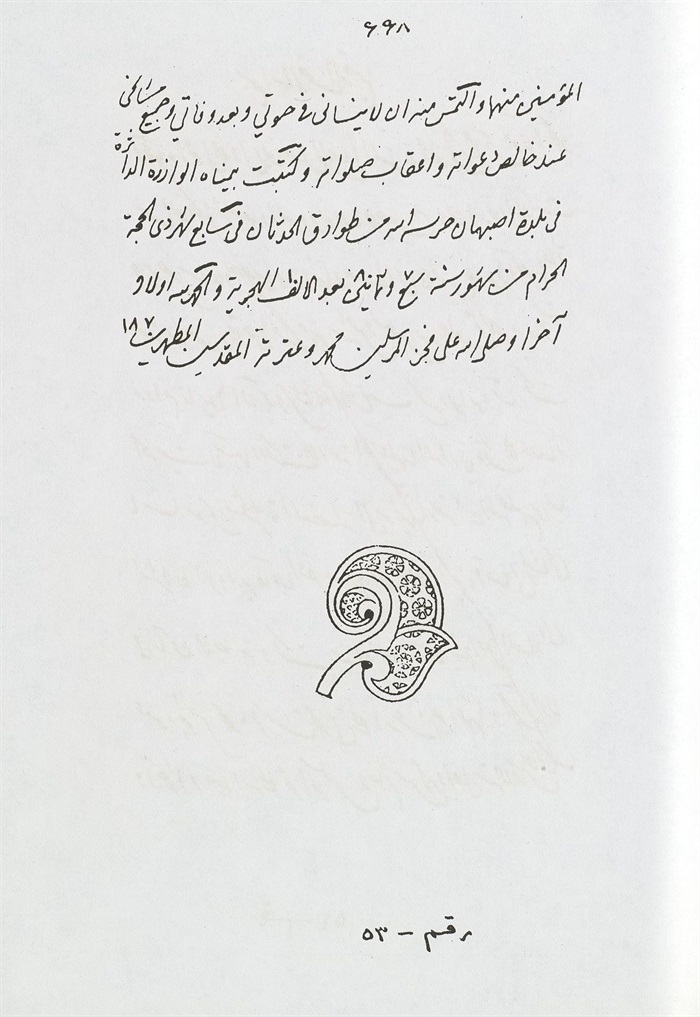 ٦٩٨
المؤمنين منها والتمس منه ان لا ينساني في حيوتي وبعد وفاتي وجميع مشايخي
عند خالص دعواته واعقاب صلواته وكتبت بيمناه الوازرة الداثرة
في بلدة اصبهان حرسه الله من طوارق الحدثان في سابع شهر ذي الحجة
الحرام من شهور سنة سبع وثمانين بعد الالف الهجرية والحمد لله اولا و
آخرا وصلى الله على فخر المرسلين محمد وعترته المقدسين المطهرين ١٠٨٧
رقم - ٥٣